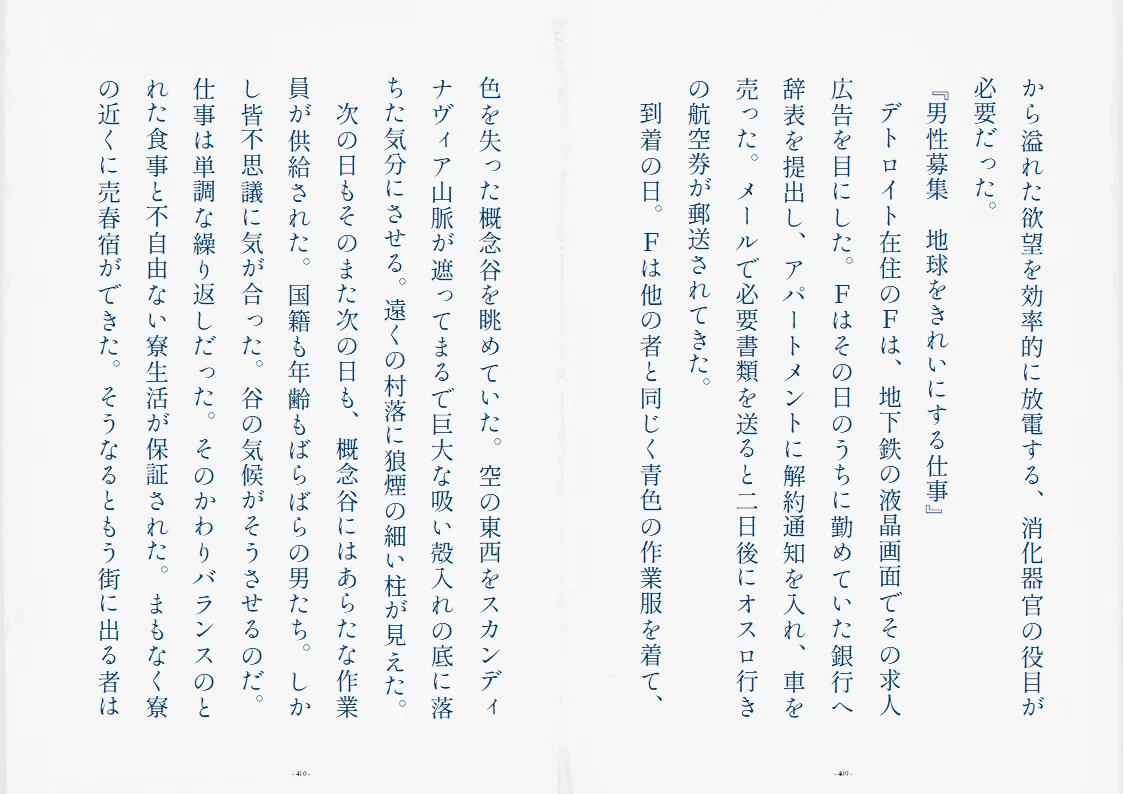 から溢れた欲望を効率的に放電する、消化器官の役目が
必要だった。
『男性募集　地球をきれいにする仕事』
　デトロイト在住のＦは、地下鉄の液晶画面でその求人
広告を目にした。Ｆはその日のうちに勤めていた銀行へ
辞表を提出し、アパートメントに解約通知を入れ、車を
売った。メールで必要書類を送ると二日後にオスロ行き
の航空券が郵送されてきた。
　到着の日。Ｆは他の者と同じく青色の作業服を着て、
- 409 -
色を失った概念谷を眺めていた。空の東西をスカンディ
ナヴィア山脈が遮ってまるで巨大な吸い殻入れの底に落
ちた気分にさせる。遠くの村落に狼煙の細い柱が見えた。
　次の日もそのまた次の日も、概念谷にはあらたな作業
員が供給された。国籍も年齢もばらばらの男たち。しか
し皆不思議に気が合った。谷の気候がそうさせるのだ。
仕事は単調な繰り返しだった。そのかわりバランスのと
れた食事と不自由ない寮生活が保証された。まもなく寮
の近くに売春宿ができた。そうなるともう街に出る者は
- 410 -